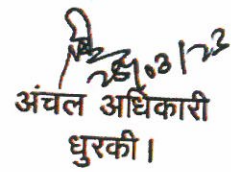 25.03/23
अंचल अधिकारी
धुरकी।